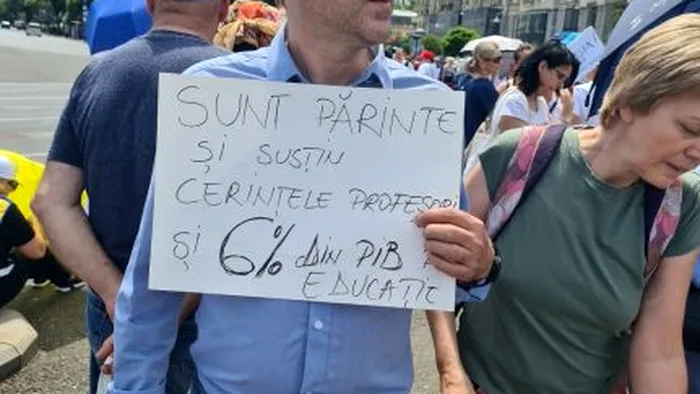 SUNT PĂRINTE
ȘI SUSȚIN
CERINȚELE PROFESORI
ȘI 6% DIN PIB
EDUCAȚIE